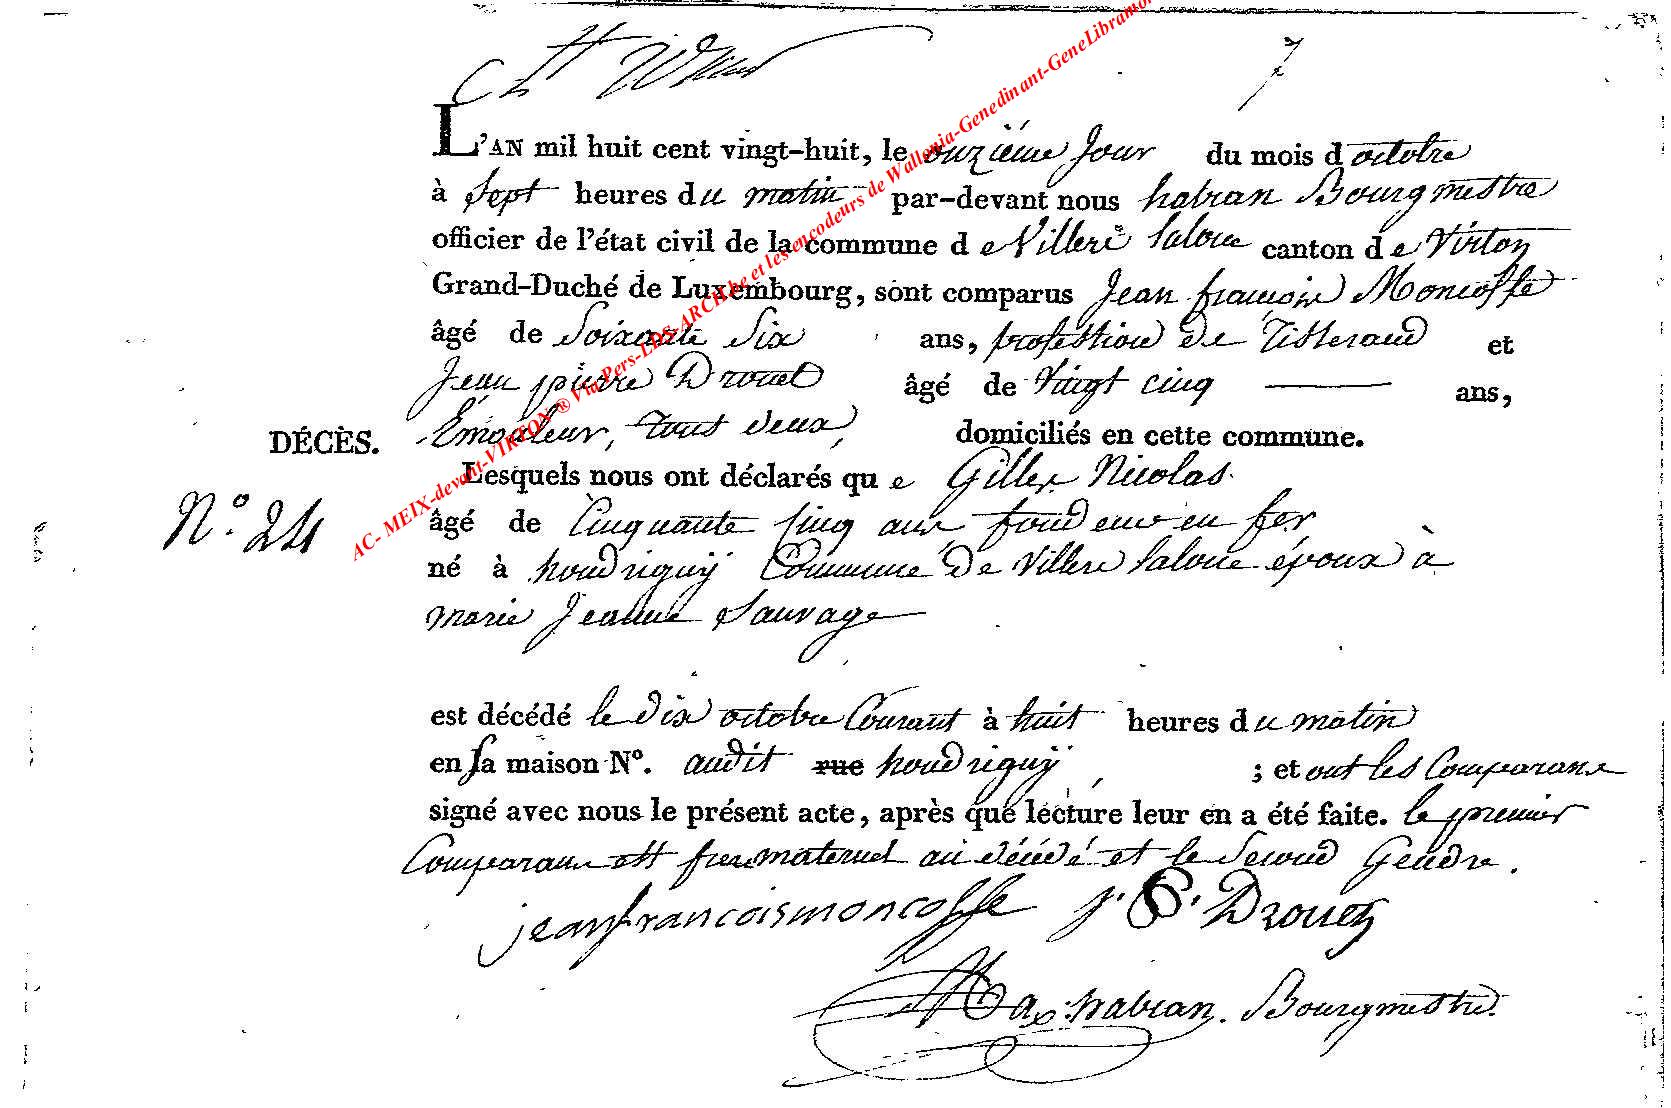 7
L'AN mil huit cent vingt-huit, le onzième Jour du mois d octobre
à Sept heures du matin par-devant nous habran Bourgmestre
officier de l'état civil de la commune de Villere laloue canton de Virton
Grand-Duché de Luxembourg, sont comparus Jean françois Moncosse
âgé de Soixante Six ans, profession de Tisserand et
Jean pierre Drouet âgé de Vingt cinq ans,
Emouleur, tous deux, domiciliés en cette commune.
DÉCÈS.
Lesquels nous ont déclarés que Gilles Nicolas
N.° 24
âgé de Cinquante cinq ans, fondeur en fer
né à houdriguÿ Commune de Villere laloue époux à
marie Jeanne Sauvage
est décédé le dix octobre Courant à huit heures du matin
en sa maison N°. audit rue houdriguÿ, ; et ont les Comparans
signé avec nous le présent acte, après que lecture leur en a été faite. le premier
Comparant est frere maternel au décédé et le Second Gendre.
jeanfrancoismoncosse J. P. Drouet
habran. Bourgmestre.
AC- MEIX-devant-VIRTON ® Via Pers-LDS-ARCH.be et les encodeurs de Wallonia-Genedinant-GeneLibramon